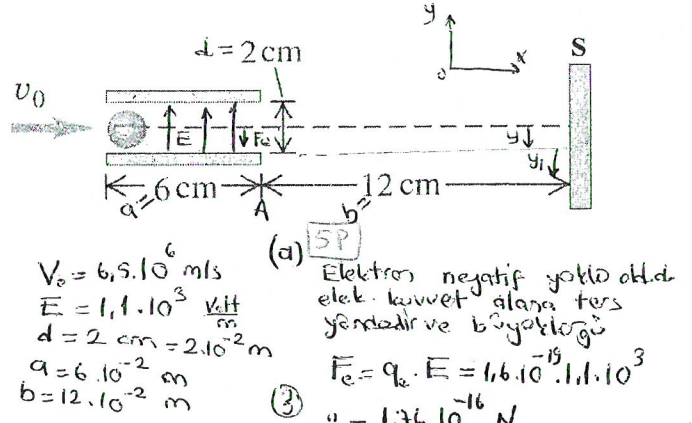 d = 2 cm
y
x
o
S
υ₀
E
Fe
y
y₁
a = 6 cm
A
b = 12 cm
(a) 5P
V₀ = 6,5.10⁶ m/s
E = 1,1.10³ Volt/m
d = 2 cm = 2.10⁻² m
a = 6.10⁻² m
b = 12.10⁻² m
Elektron negatif yüklü
elek. kuvvet alana ters
yöndedir ve büyüklüğü
Fe = qe . E = 1,6.10⁻¹⁹.1,1.10³
③
" = 1,76.10⁻¹⁶ N